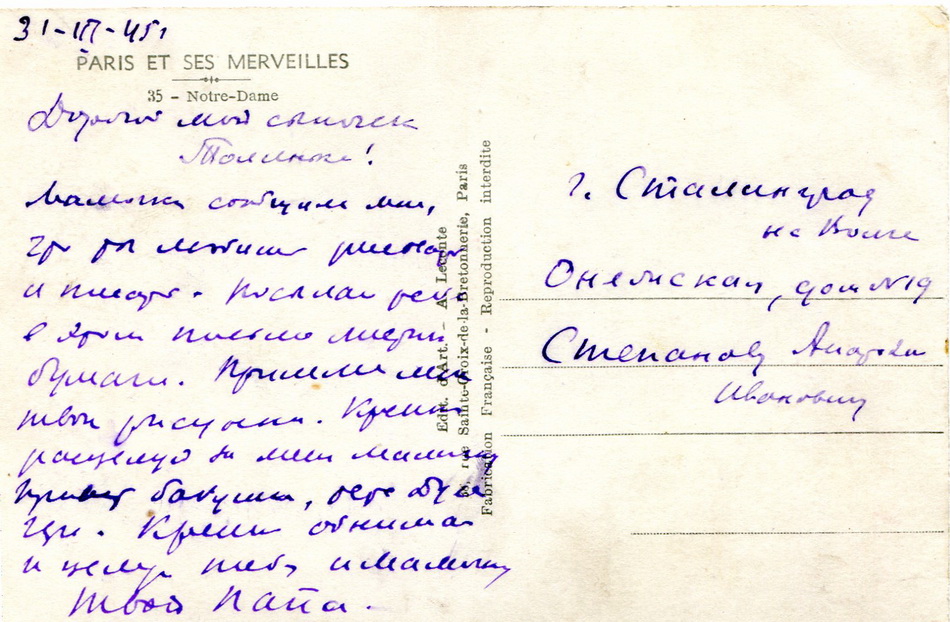 31-III-45г
PARIS ET SES MERVEILLES
35 - Notre-Dame
Дорогой мой сыночек
Толинька!
Мамочка сообщила мне,
что ты любишь рисовать
и писать. Посылаю тебе
в этом письме листик
бумаги. Пришли мне
твои рисунки. Крепко
расцелуй за меня мамочку
бабушки,
Крепко обнимаю
и целую тебя и мамочку
твой папа.
Edit. d'Art. - A. Leconte
38, rue Sainte-Croix-de-la-Bretonnerie, Paris
Fabrication Française - Reproduction interdite
г. Сталинград
на Волге
Онежская, дом №19
Степанову
Ивановичу